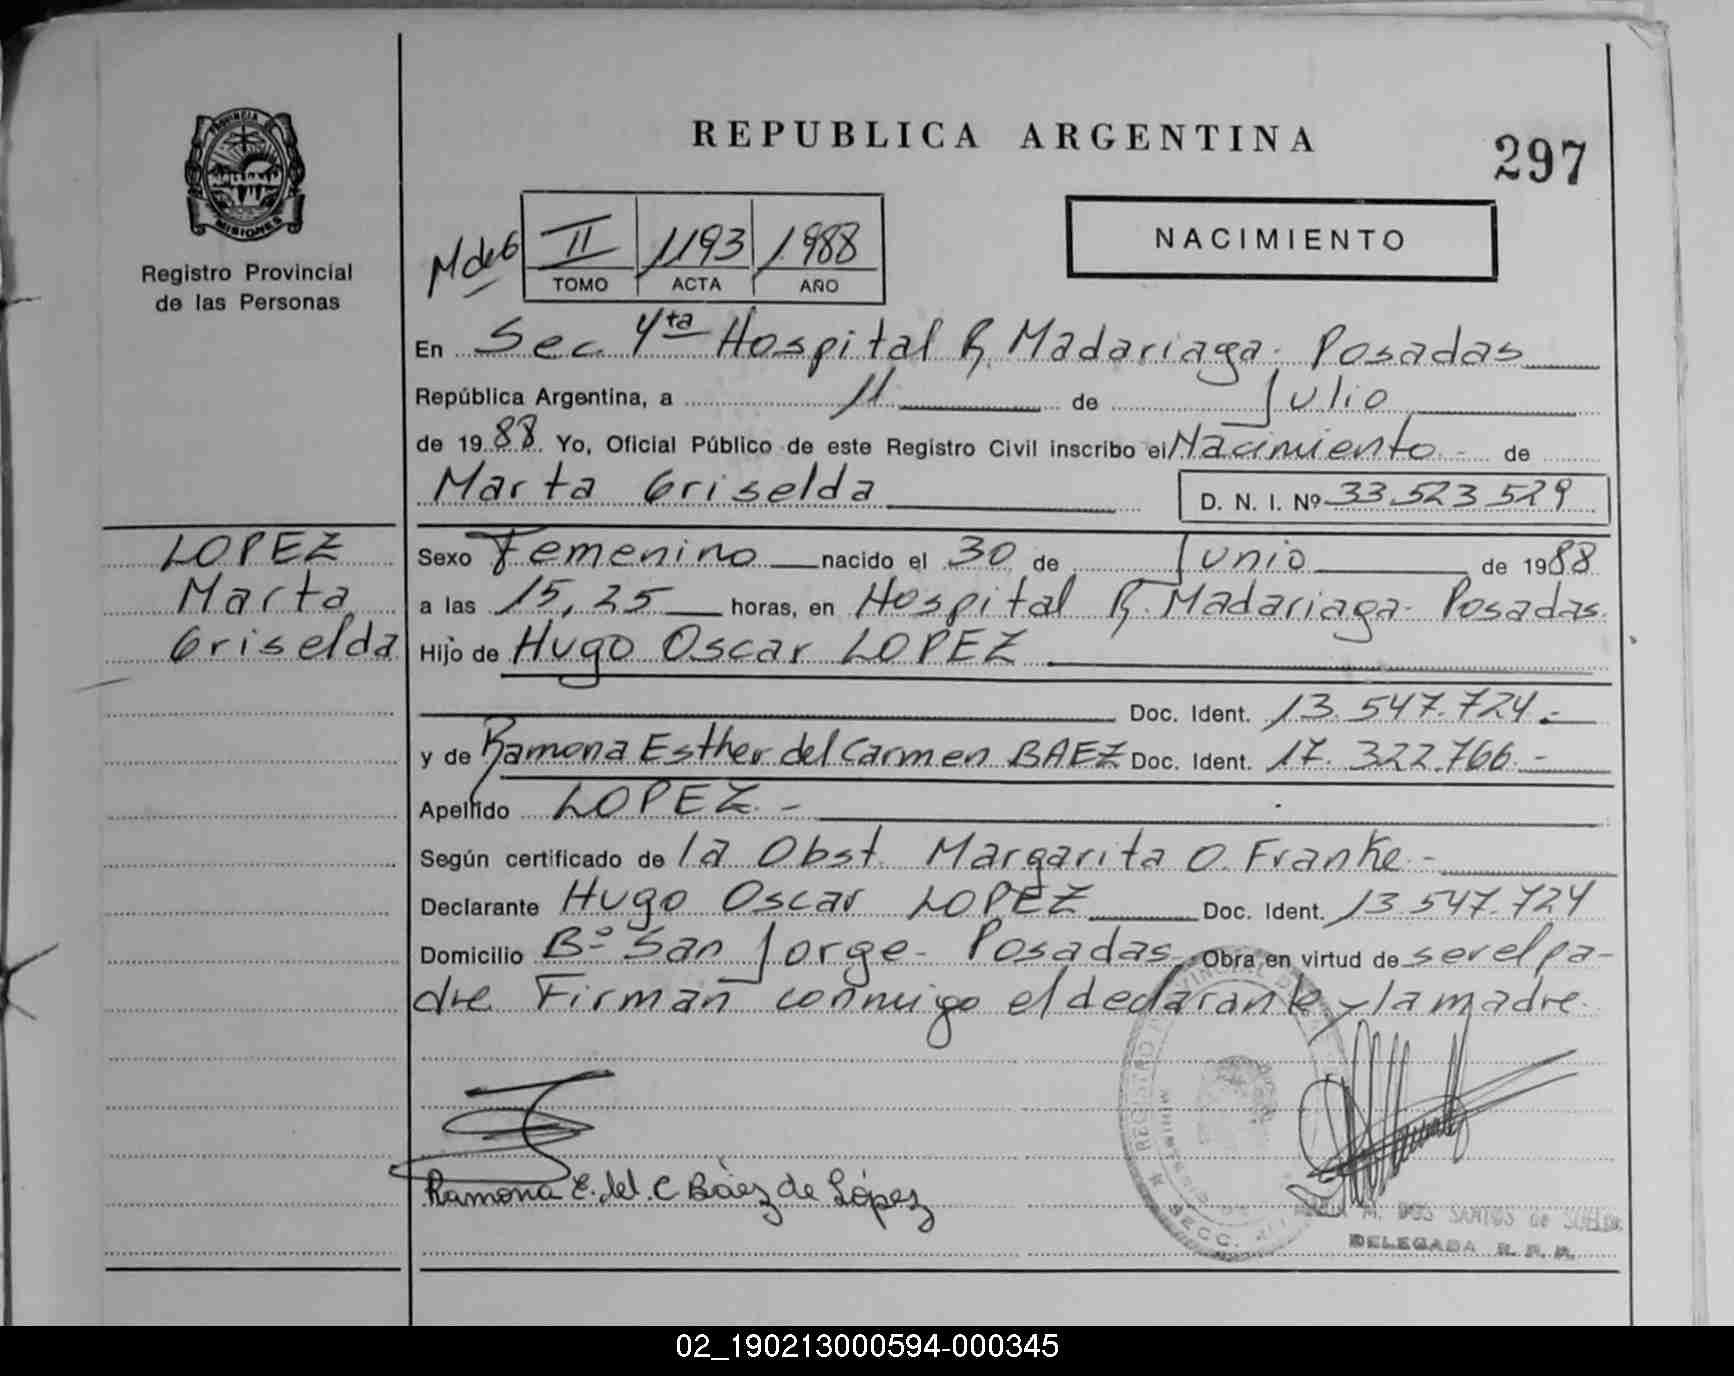 REPUBLICA ARGENTINA
297
PROVINCIA DE
MISIONES
Registro Provincial
de las Personas
II 1193 1988
TOMO ACTA AÑO
NACIMIENTO
En Sec. 4ta Hospital R. Madariaga- Posadas
República Argentina, a 11 de Julio
de 1988 Yo, Oficial Público de este Registro Civil inscribo el Nacimiento - de
Marta Griselda
D. N. I. Nº 33.523.529
LOPEZ
Marta
Griselda
Sexo Femenino nacido el 30 de Junio de 1988
a las 15,25 horas, en Hospital R. Madariaga- Posadas.
Hijo de Hugo Oscar LOPEZ
Doc. Ident. 13.547.724.-
y de Ramona Esther del Carmen BAEZ Doc. Ident. 17.322.766.-
Apellido LOPEZ.-
Según certificado de la Obst. Margarita O. Franke.-
Declarante Hugo Oscar LOPEZ Doc. Ident. 13.547.724
Domicilio Bº San Jorge- Posadas. Obra en virtud de ser el pa-
dre Firman conmigo el declarante y la madre.
Ramona E. del. C Báez de López
M. DOS SANTOS de
DELEGADA R. P. P.
02_190213000594-000345